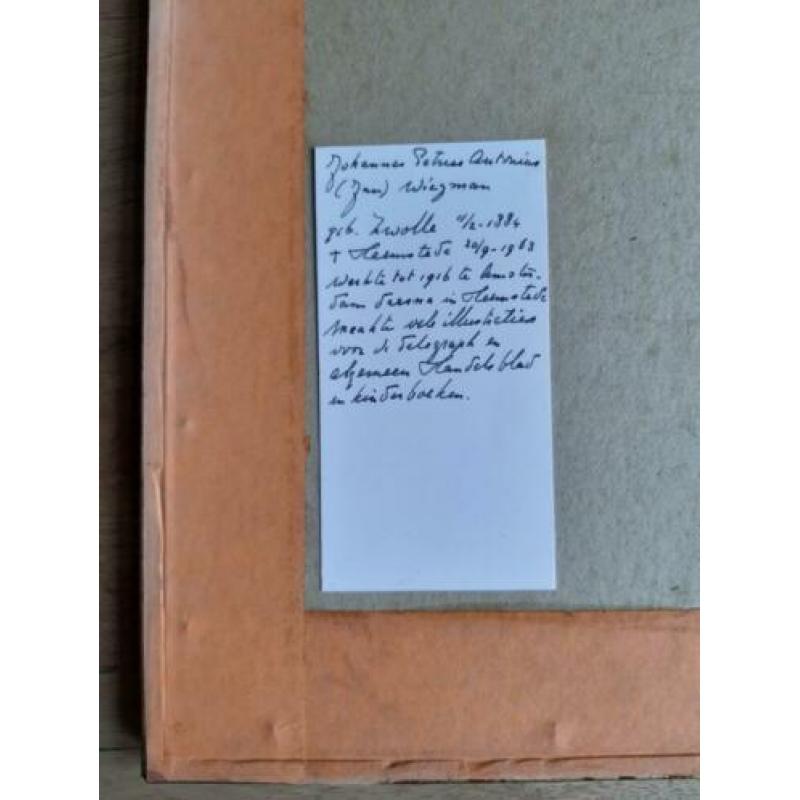 Johannes Petrus Antonius
(Jan) Wiegman
geb. Zwolle 11/2-1884
+ Heemstede 20/9-1963
werkte tot 1916 te Amster-
dam daarna in Heemstede
maakte vele illustraties
voor de Telegraph en
algemeen Handelsblad
en kinderboeken.